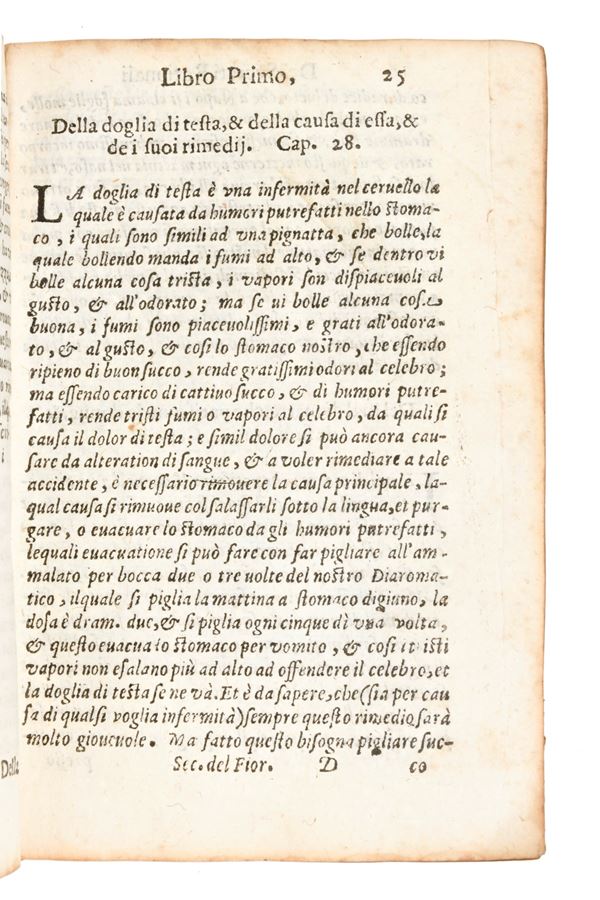 Libro Primo, 25
Della doglia di testa, & della causa di essa, &
de i suoi rimedij. Cap. 28.
LA doglia di testa è vna infermità nel ceruello la
quale è causata da humori putrefatti nello stoma-
co, i quali sono simili ad vna pignatta, che bolle, la
quale bollendo manda i fumi ad alto, & se dentro vi
bolle alcuna cosa trista, i vapori son dispiaceuoli al
gusto, & all'odorato; ma se ui bolle alcuna cosa
buona, i fumi sono piaceuolissimi, e grati all'odora-
to, & al gusto, & così lo stomaco nostro, che essendo
ripieno di buon succo, rende gratissimi odori al celebro;
ma essendo carico di cattiuo succo, & di humori putre-
fatti, rende tristi fumi o vapori al celebro, da quali si
causa il dolor di testa; e simil dolore si può ancora cau-
sare da alteration di sangue, & a voler rimediare a tale
accidente, è necessario rimouere la causa principale, la-
qual causa si rimuoue col salassarli sotto la lingua, et pur-
gare, o euacuare lo stomaco da gli humori putrefatti,
lequali euacuatione si può fare con far pigliare all'am-
malato per bocca due o tre uolte del nostro Diaroma-
tico, ilquale si piglia la mattina a stomaco digiuno, la
dosa è dram. due, & si piglia ogni cinque dì vna volta,
& questo euacua lo stomaco per vomito, & così tristi
vapori non esalano più ad alto ad offendere il celebro, et
la doglia di testa se ne và. Et è da sapere, che (sia per cau
sa di qualsi voglia infermità) sempre questo rimedio sarà
molto gioueuole. Ma fatto questo bisogna pigliare suc-
Sec. del Fior. D co
Delle